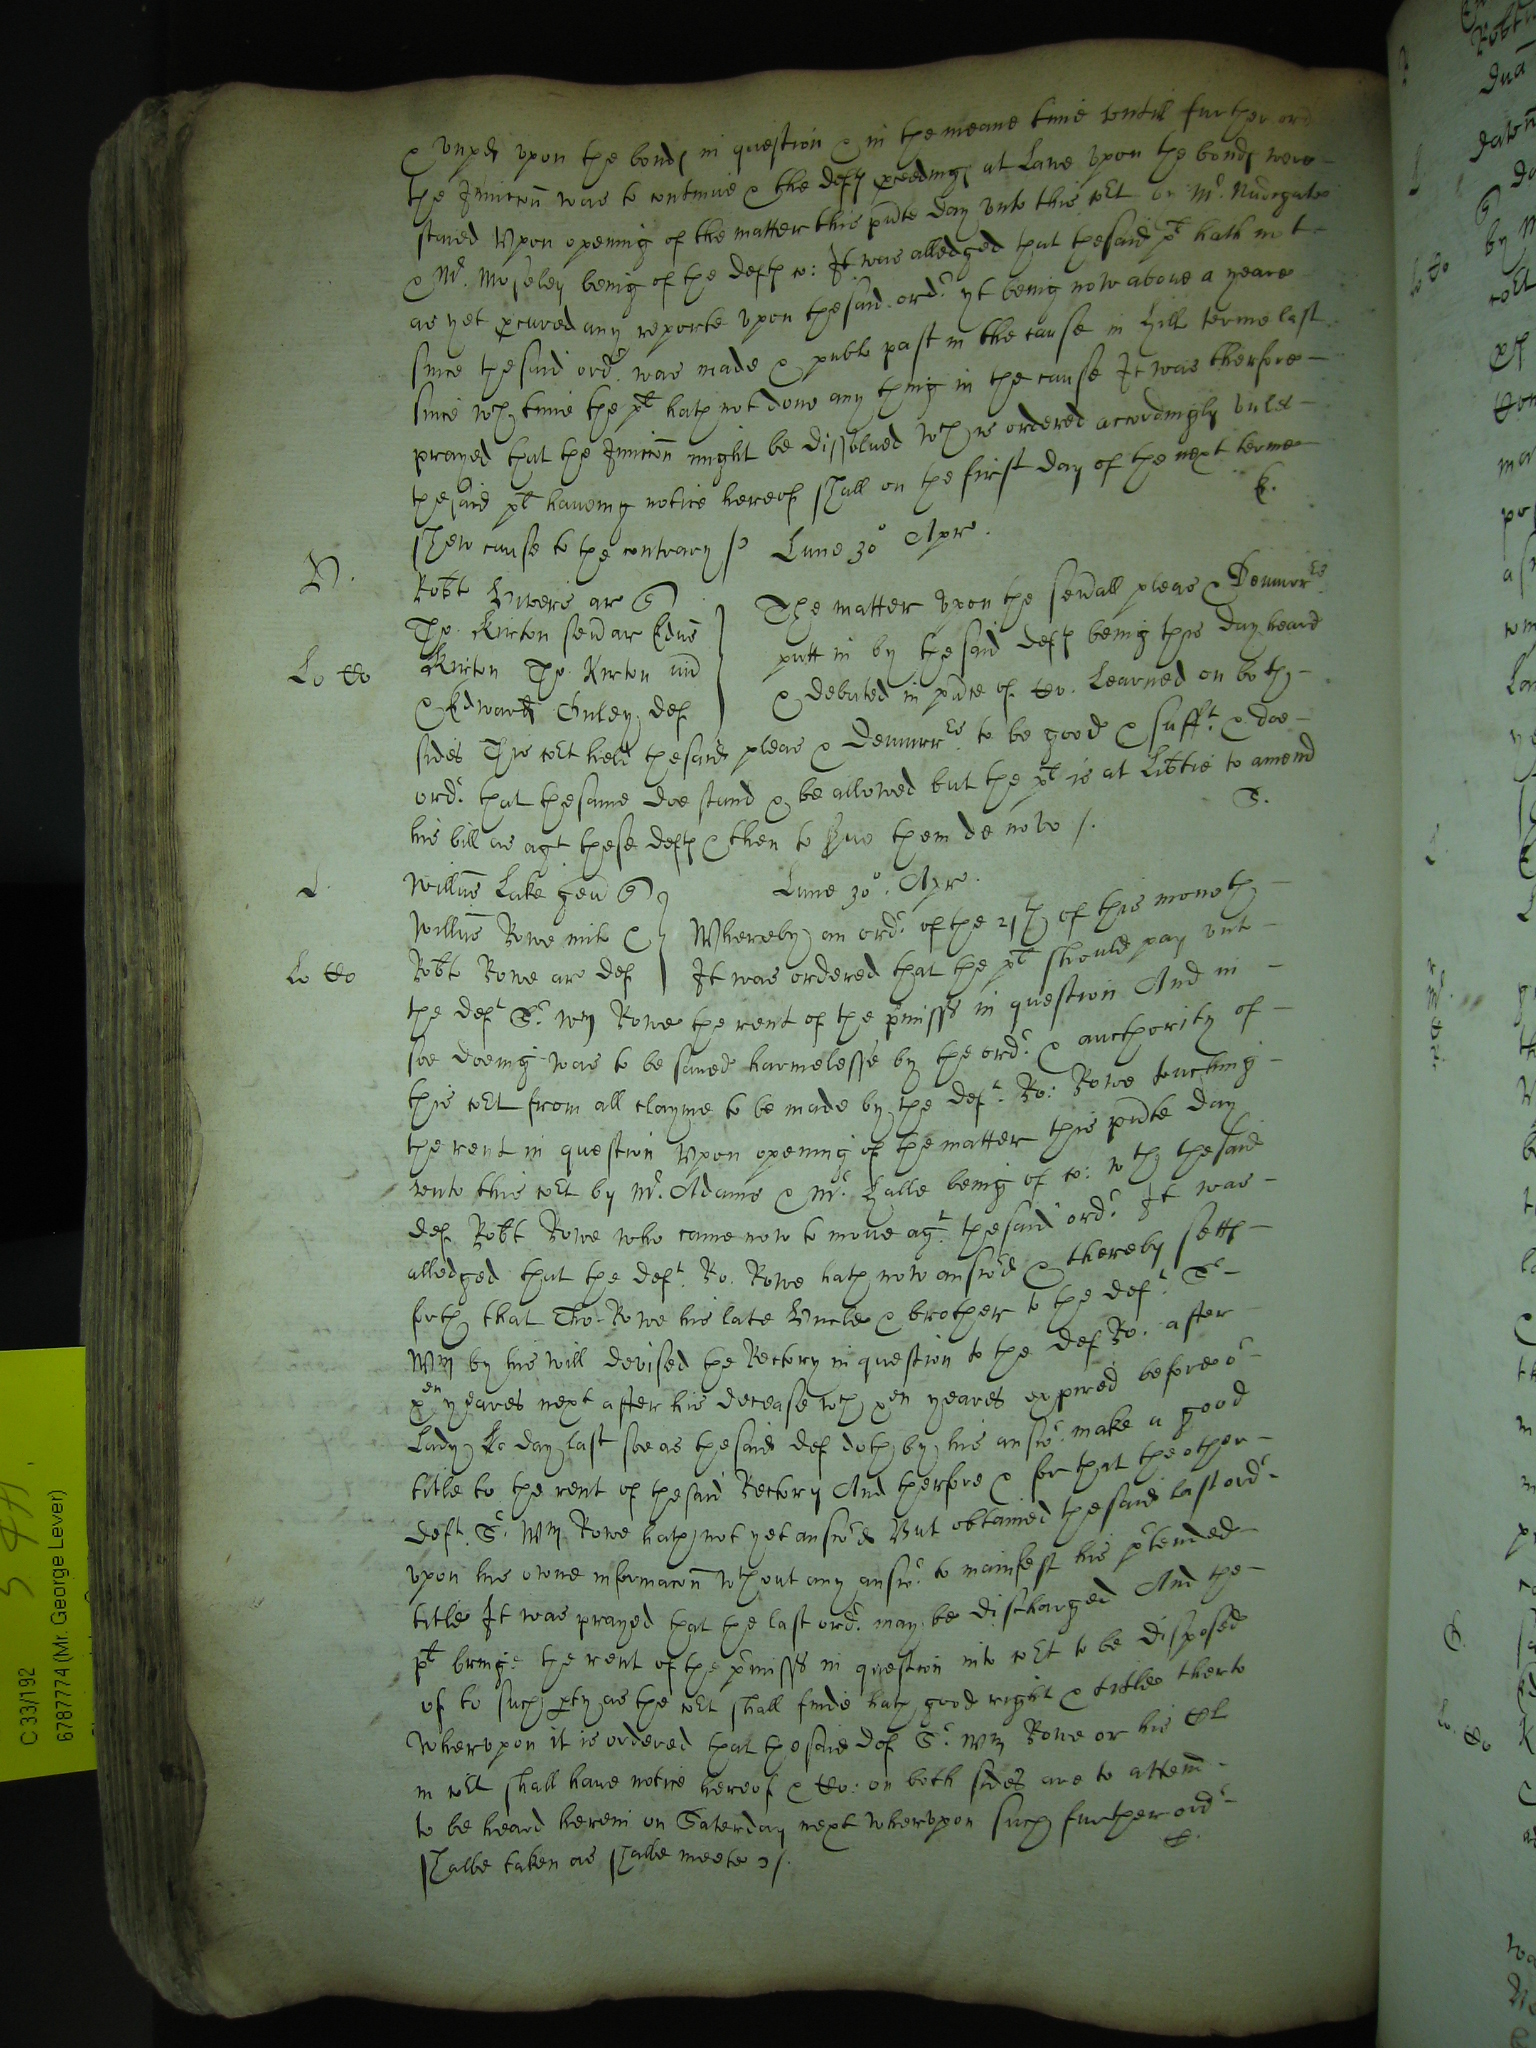 & unpd upon the bonds in question & in the meane time untill further ord
the Iniunccon was to continue & the defts proceedings at Lawe upon the bonds were
stayed Upon opening of the matter this pnte day unto this cort by Mr. Nudegate
& Mr. Moseley being of the defts co: It was alledged that the said plt hath not
as yet procured any reporte upon the said ordr. yt being now above a yeare
since the said ordr. was made & publo past in the cause in Hill terme last
since wch time the plt hath not done any thing in the cause It was therfore
prayed that the Iniunccon might be dissolued wch is ordered accordingly unles
the said plt haveing notice hereof shall on the first day of the next terme
shew cause to the contrary
Lune 30o Apr.
Robt Rivers ar
Tho. Kirton sen ar Edus
Kirton Tho. Kirton iun
& Edward def
The matter upon the severall pleas & Demurres
putt in by the said defts being this day heard
& debated in pnce of Co. Learned on both
Lo Co
sides This cort held the said pleas & demurres. to be good & sufft. & doe
ordr. that the same doe stand & be allowed but the plt is at Libtie to amend
his bill as agt these defts & then to serve them de novo
L.
Willus Lake gen
Lune 30o. Apr.
Willus Rowe milt &
Whereby an ordr. of the 21th of this moneth
Lo Co
Robt Rowe ar def
It was ordered that the plt should pay unto
the deft Sr. Wm Rowe the rent of the pmisses in question And in
soe doeing was to be saved harmelesse by the ordr. & aucthority of
this cort from all clayme to be made by the deft. Ro: Rowe touching
the rent in question Upon opening of the matter this pnte day
unto this cort by Mr. Adams & Mr. Halle being of co: wth the said
def Robt Rowe who came now to move agt. the said ordr. It was
alledged that the deft. Ro. Rowe hath now answd & thereby setts
forth that Tho. Rowe his late Uncle & brother to the deft. Sr
Wm by his will devised the Rectory in question to the def Ro. after
xen yeares next after his decease wch xen yeares expired before or
Lady day last soe as the said def doth by his answr. make a good
title to the rent of the said Rectory And therfore & for that the other
deft. Sr. Wm Rowe hath not yet answrd But obtained the said last ordr
upon his owne informacon wthout any answr. to manifest his prtended
title It was prayed that the last ordr. may be discharged And the
plt bringe the rent of the pmisses in question into cort to be disposed
of to such pty as the cort shall finde hath good right & title therto
Wherupon it is ordered that the said def Sr. Wm Rowe or his Clt
in cort shall have notice hereof & Co: on both sides are to attend
to be heard herein on Saterday next wherupon such further ordr
shalbe taken as shalbe meete
C 33/192
6787774 (Mr. George Lever)